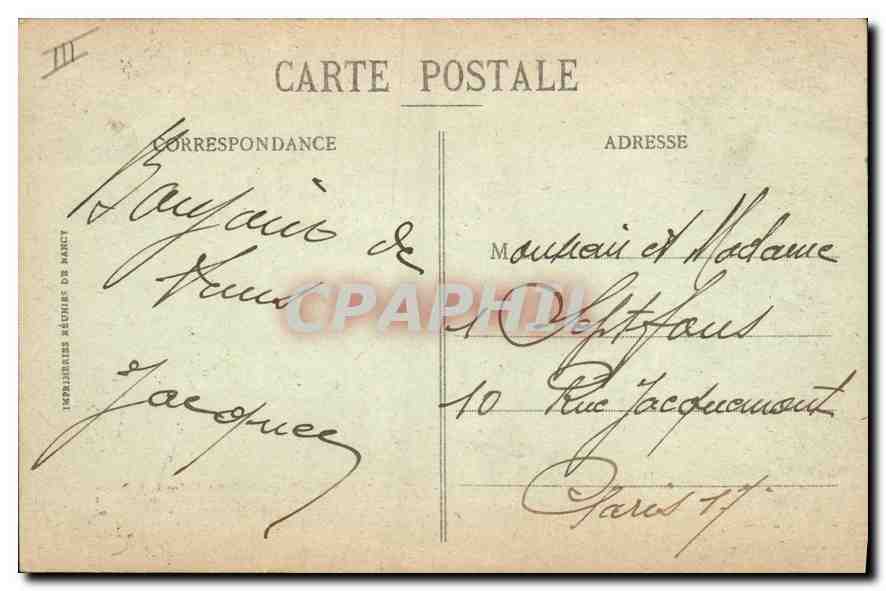 III
CARTE POSTALE
CORRESPONDANCE
Bonjour de
Jacques
IMPRIMERIES RÉUNIES DE NANCY
CPAPHIL
ADRESSE
Monsieur et Madame
Septfons
10 Rue Jacquemont
Paris 17